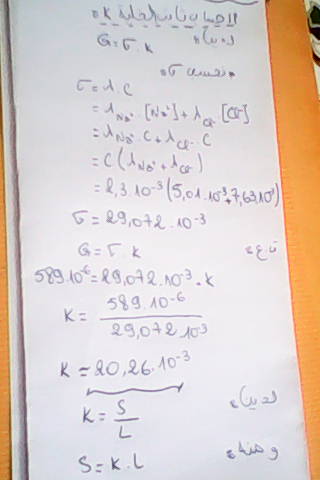 لدينا:
G = σ . K
نحسب σ:
σ = λ . C
= λNa⁺ . [Na⁺] + λCl⁻ . [Cl⁻]
= λNa⁺ . C + λCl⁻ . C
= C (λNa⁺ + λCl⁻)
= 2,3.10⁻³ (5,01.10⁻³ + 7,63.10⁻³)
σ = 29,072 . 10⁻³
G = σ . K
589.10⁻⁶ = 29,072 . 10⁻³ . K
K = 589 . 10⁻⁶ / 29,072 . 10⁻³
K = 20,26 . 10⁻³
لدينا:
K = S / L
ومنه:
S = K . L